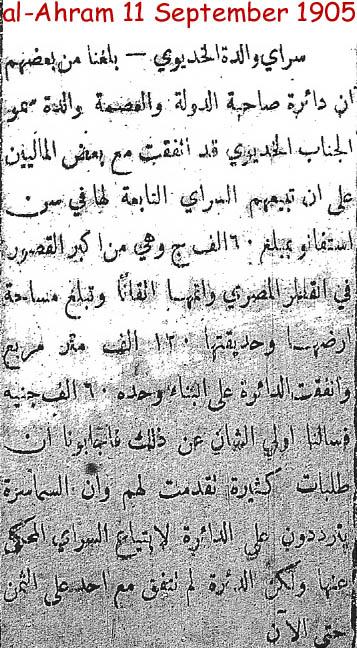 al-Ahram 11 September 1905
سراي والدة الخديوي — بلغنا من بعضهم
ان دائرة صاحبة الدولة والعصمة والدة سمو
الجناب الخديوي قد اتفقت مع بعض الماليين
على ان تبيعهم السراي التابعة لها في سان
استفانو بمبلغ ٦٠ الف ج وهي من اكبر القصور
في القطر المصري واتمها اتقانًا وتبلغ مساحة
ارضها وحديقتها ١٢٠ الف متر مربع
وانفقت الدائرة على البناء وحده ٦٠ الف جنيه
فسالنا اولي الشان عن ذلك فاجابونا ان
طلبات كثيرة تقدمت لهم وان السماسرة
يترددون على الدائرة لابتياع السراي المحكي
عنها ولكن الدائرة لم تتفق مع احد على الثمن
حتى الآن